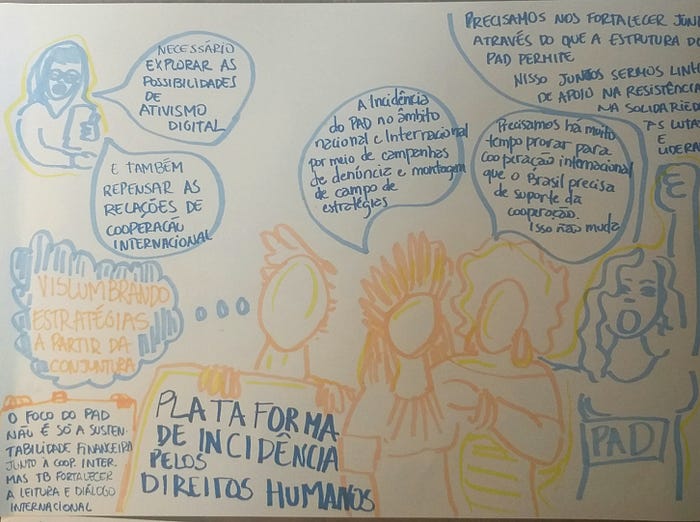 NECESSÁRIO
EXPLORAR AS
POSSIBILIDADES
DE
ATIVISMO
DIGITAL
E TAMBÉM
REPENSAR AS
RELAÇÕES DE
COOPERAÇÃO
INTERNACIONAL
A Incidência
do PAD no âmbito
nacional e Internacional
por meio de campanhas
de denúncia e montagem
de campo de
estratégias
PRECISAMOS NOS FORTALECER
ATRAVÉS DO QUE A ESTRUTURA
PAD PERMITE
NISSO JUNTOS SERMOS
DE APOIO NA RESISTÊNCIA
NA
E
Precisamos há muito
tempo prorar para
cooperação internacional
que o Brasil precisa
de suporte da
cooperação.
Isso não muda
VISLUMBRANDO
ESTRATÉGIAS
A PARTIR DA
CONJUNTURA
O FOCO DO PAD
NÃO É SÓ A SUSTEN-
TABILIDADE FINANCEIRA
JUNTO À COOP. INTER.
MAS TB FORTALECER
A LEITURA E DIÁLOGO
INTERNACIONAL
PLATAFORMA
DE INCIDÊNCIA
PELOS
DIREITOS HUMANOS
PAD